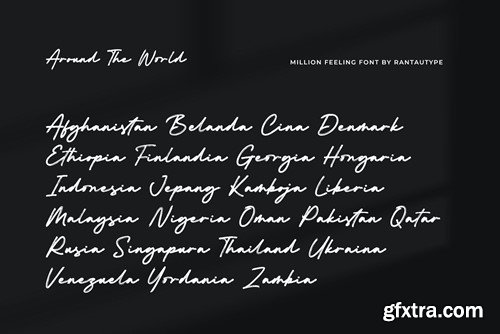 Around The World
MILLION FEELING FONT BY RANTAUTYPE
Afghanistan Belanda Cina Denmark
Ethiopia Finlandia Georgia Hongaria
Indonesia Jepang Kamboja Liberia
Malaysia Nigeria Oman Pakistan Qatar
Rusia Singapura Thailand Ukraina
Venezuela Yordania Zambia
gfxtra.com